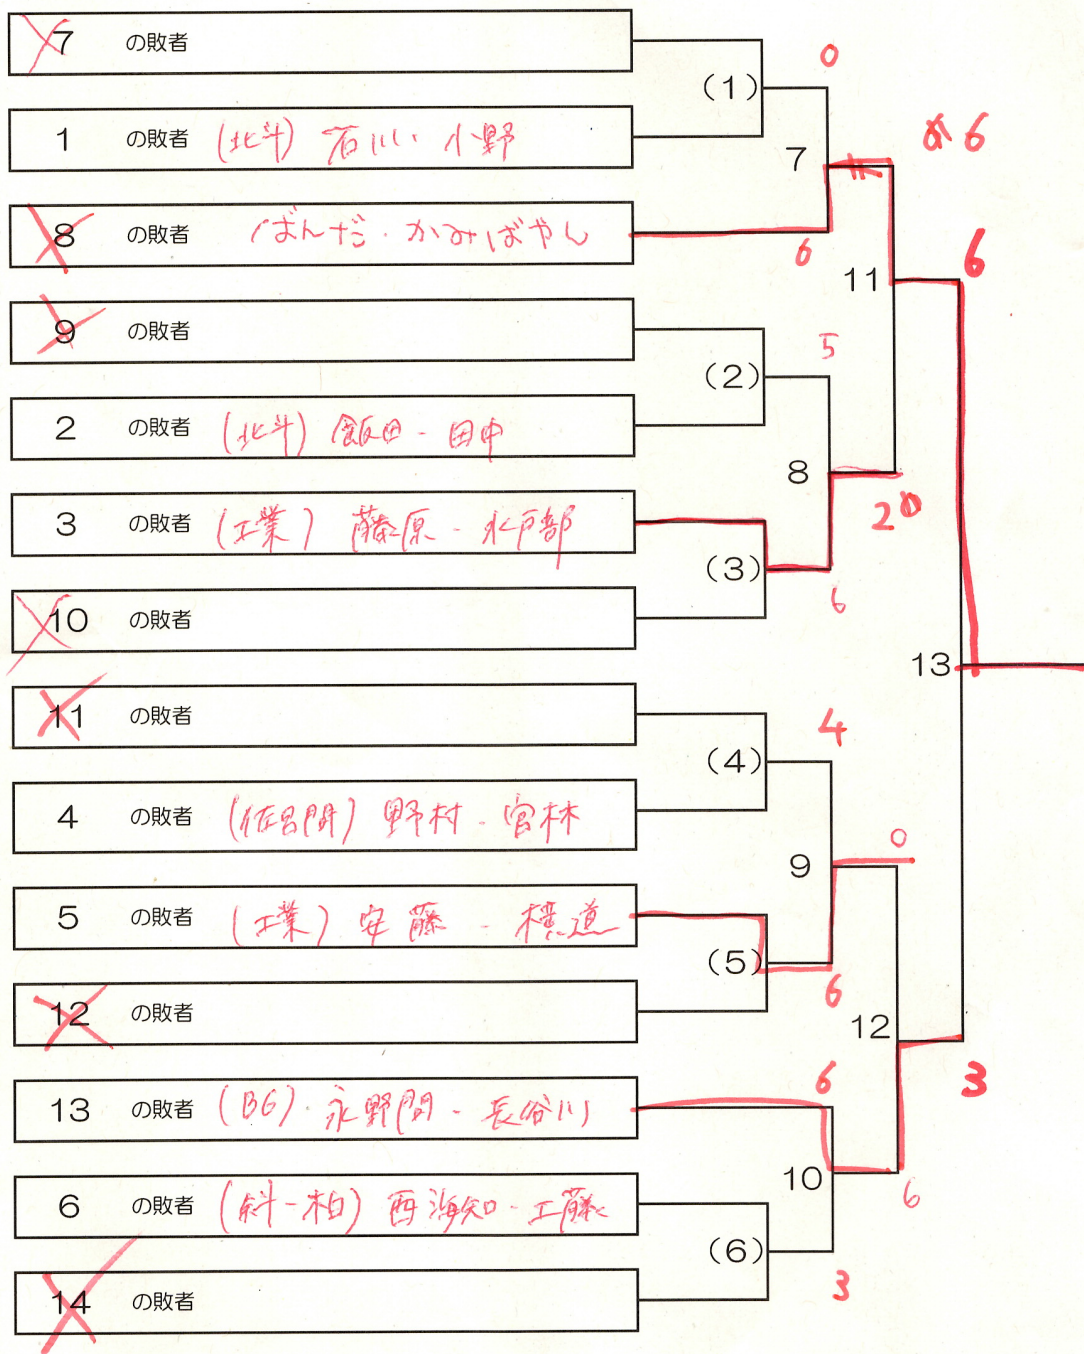 7 の敗者
1 の敗者 (北斗) 石川・小野
8 の敗者 ばんだ・かみばやし
9 の敗者
2 の敗者 (北斗) 飯田-田中
3 の敗者 (工業) 藤原-水戸部
10 の敗者
11 の敗者
4 の敗者 (佐呂間) 野村-宮林
5 の敗者 (工業) 安藤-横道
12 の敗者
13 の敗者 (BG)・永野間-長谷川
6 の敗者 (斜-柏) 西海知-工藤
14 の敗者
(1)
(2)
(3)
(4)
(5)
(6)
0
7
6
5
8
6
4
9
6
6
10
3
6
11
2
0
12
6
6
13
3